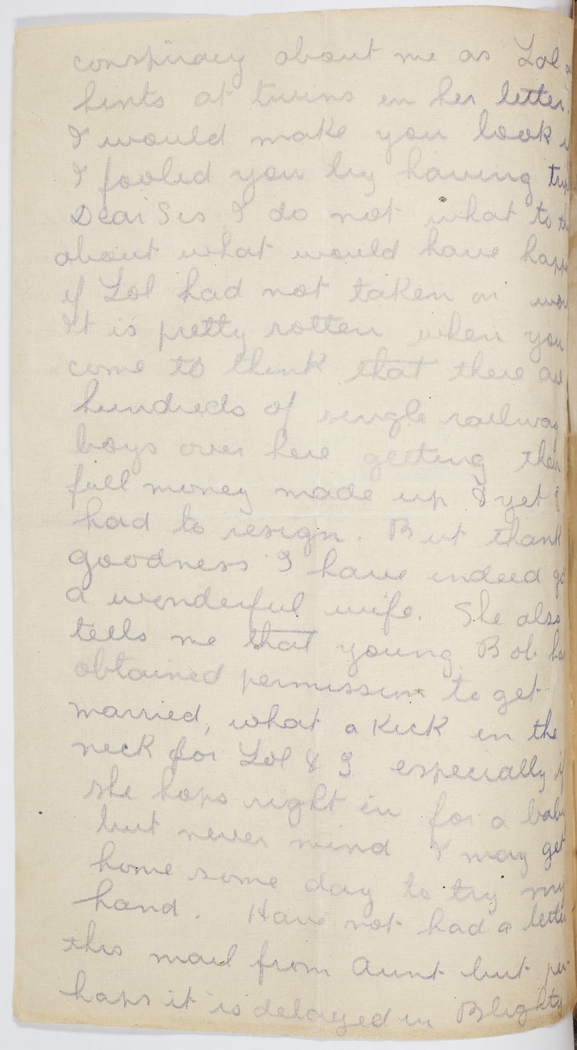 conspiracy about me as Lol
hints at twins in her letter.
I would make you look
I fooled you by having
Dear Sis I do not what to
about what would have
if Lol had not taken on
It is pretty rotten when you
come to think that there
hundreds of single railway
boys over here getting
full money made up & yet I
had to resign. But thank
goodness I have indeed
a wonderful wife. She also
tells me that young Bob
obtained permission to get
married, what a kick in the
neck for Lol & I especially
she hops right in for a baby
but never mind I may get
home some day to try my
hand. Have not had a letter
this mail from Aunt but per-
haps it is delayed in Blighty